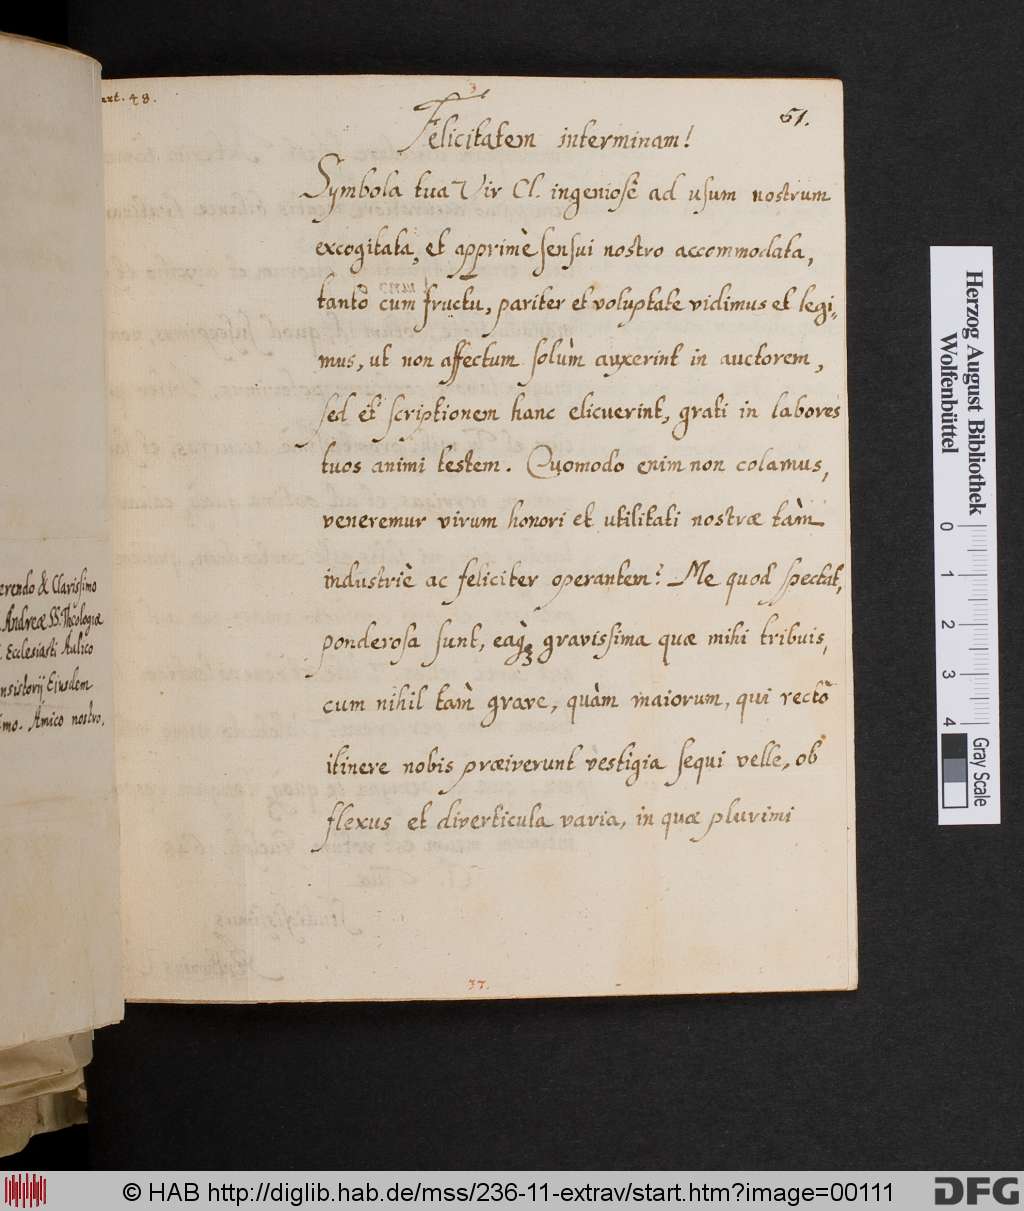 erendo & Clarissimo
Andreæ SS. Theologiæ
Ecclesiasti Aulico
nsistorij Eiusdem
imo. Amico nostro.
48.
51.
Felicitatem interminam!
Symbola tua Vir Cl. ingeniosè ad usum nostrum
excogitata, et apprimè sensui nostro accommodata,
tantô cum fructu, pariter et voluptate vidimus et legi-
mus, ut non affectum solùm auxerint in auctorem,
sed et scriptionem hanc elicuerint, grati in labores
tuos animi testem. Quomodo enim non colamus,
veneremur virum honori et utilitati nostræ tàm
industriè ac feliciter operantem? Me quod spectat,
ponderosa sunt, eaq; gravissima quæ mihi tribuis,
cum nihil tàm grave, quàm maiorum, qui rectô
itinere nobis præiverunt vestigia sequi velle, ob
flexus et diverticula varia, in quæ plurimi
37.
Herzog August Bibliothek
Wolfenbüttel
0 1 2 3 4
Gray Scale
© HAB http://diglib.hab.de/mss/236-11-extrav/start.htm?image=00111
DFG